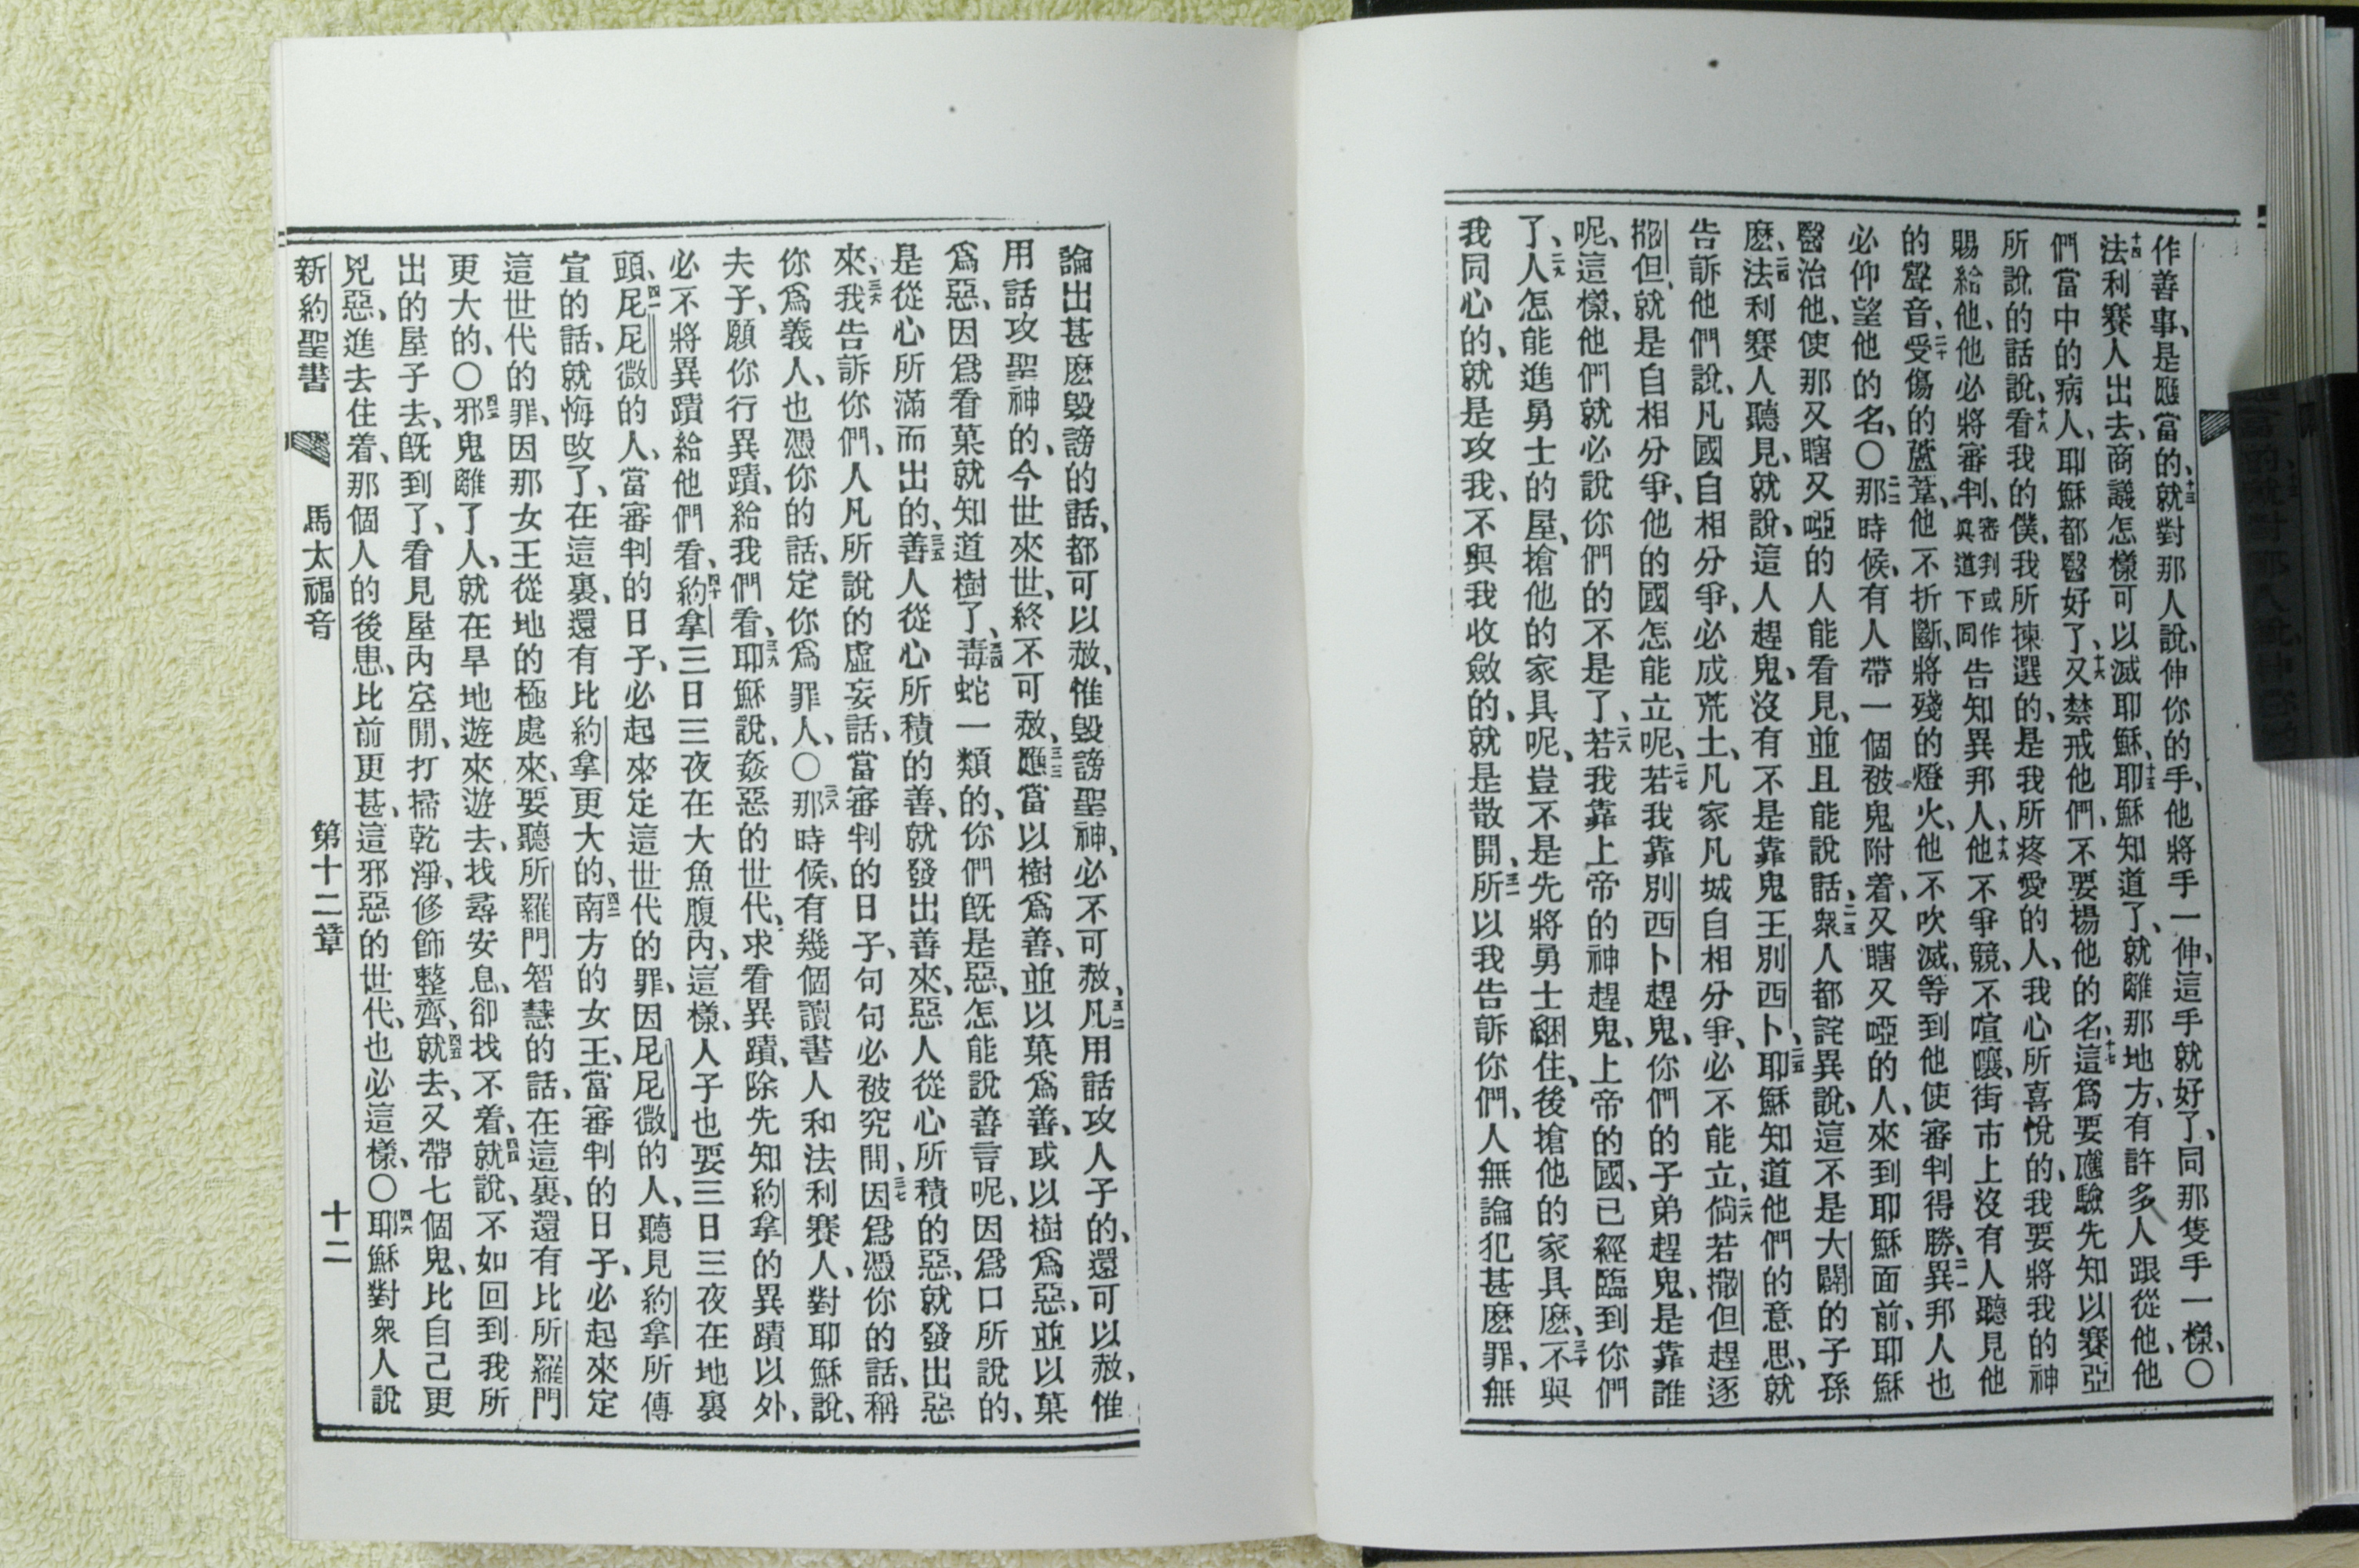 作善事、是應當的、十三就對那人說、伸你的手、他將手一伸、這手就好了、同那隻手一樣、〇
十四法利賽人出去、商議怎樣可以滅耶穌、十五耶穌知道了、就離那地方、有許多人跟從他、他
們當中的病人、耶穌都醫好了、十六又禁戒他們、不要揚他的名、十七這爲要應驗先知以賽亞
所說的話說、十八看我的僕、我所揀選的、是我所疼愛的人、我心所喜悅的、我要將我的神
賜給他、他必將審判、審判或作眞道下同告知異邦人、十九他不爭競、不喧嚷、街市上沒有人聽見他
的聲音、二十受傷的蘆葦、他不折斷、將殘的燈火、他不吹滅、等到他使審判得勝、二一異邦人也
必仰望他的名、〇二二那時候、有人帶一個被鬼附着、又瞎又啞的人、來到耶穌面前、耶穌
醫治他、使那又瞎又啞的人能看見、並且能說話、二三衆人都詫異說、這不是大闢的子孫
麽、二四法利賽人聽見、就說、這人趕鬼、沒有不是靠鬼王別西卜、二五耶穌知道他們的意思、就
告訴他們說、凡國自相分爭、必成荒土、凡家凡城自相分爭、必不能立、二六倘若撒但趕逐
撒但、就是自相分爭、他的國怎能立呢、二七若我靠別西卜趕鬼、你們的子弟趕鬼、是靠誰
呢、這樣、他們就必說你們的不是了、二八若我靠上帝的神趕鬼、上帝的國、已經臨到你們
了、二九人怎能進勇士的屋、搶他的家具呢、豈不是先將勇士綑住、後搶他的家具麽、三十不與
我同心的、就是攻我、不與我收斂的、就是散開、三一所以我告訴你們、人無論犯甚麽罪、無
論出甚麽毀謗的話、都可以赦、惟毀謗聖神、必不可赦、三二凡用話攻人子的、還可以赦、惟
用話攻聖神的、今世來世、終不可赦、三三應當以樹爲善、並以菓爲善、或以樹爲惡、並以菓
爲惡、因爲看菓就知道樹了、三四毒蛇一類的、你們旣是惡、怎能說善言呢、因爲口所說的、
是從心所滿而出的、三五善人從心所積的善、就發出善來、惡人從心所積的惡、就發出惡
來、三六我告訴你們、人凡所說的虛妄話、當審判的日子、句句必被究問、三七因爲憑你的話、稱
你爲義人、也憑你的話、定你爲罪人、〇三八那時候、有幾個讀書人和法利賽人、對耶穌說、
夫子、願你行異蹟、給我們看、三九耶穌說、姦惡的世代、求看異蹟、除先知約拿的異蹟以外、
必不將異蹟給他們看、四十約拿三日三夜在大魚腹內、這樣、人子也要三日三夜在地裏
頭、四一尼尼微的人、當審判的日子、必起來定這世代的罪、因尼尼微的人、聽見約拿所傳
宣的話、就悔改了、在這裏、還有比約拿更大的、四二南方的女王、當審判的日子、必起來定
這世代的罪、因那女王從地的極處來、要聽所羅門智慧的話、在這裏、還有比所羅門
更大的、〇四三邪鬼離了人、就在旱地遊來遊去、找尋安息、卻找不着、四四就說、不如回到我所
出的屋子去、旣到了、看見屋內空閒、打掃乾淨、修飾整齊、四五就去、又帶七個鬼、比自己更
兇惡、進去住着、那個人的後患、比前更甚、這邪惡的世代、也必這樣、〇四六耶穌對衆人說
新約聖書 馬太福音 第十二章 十二